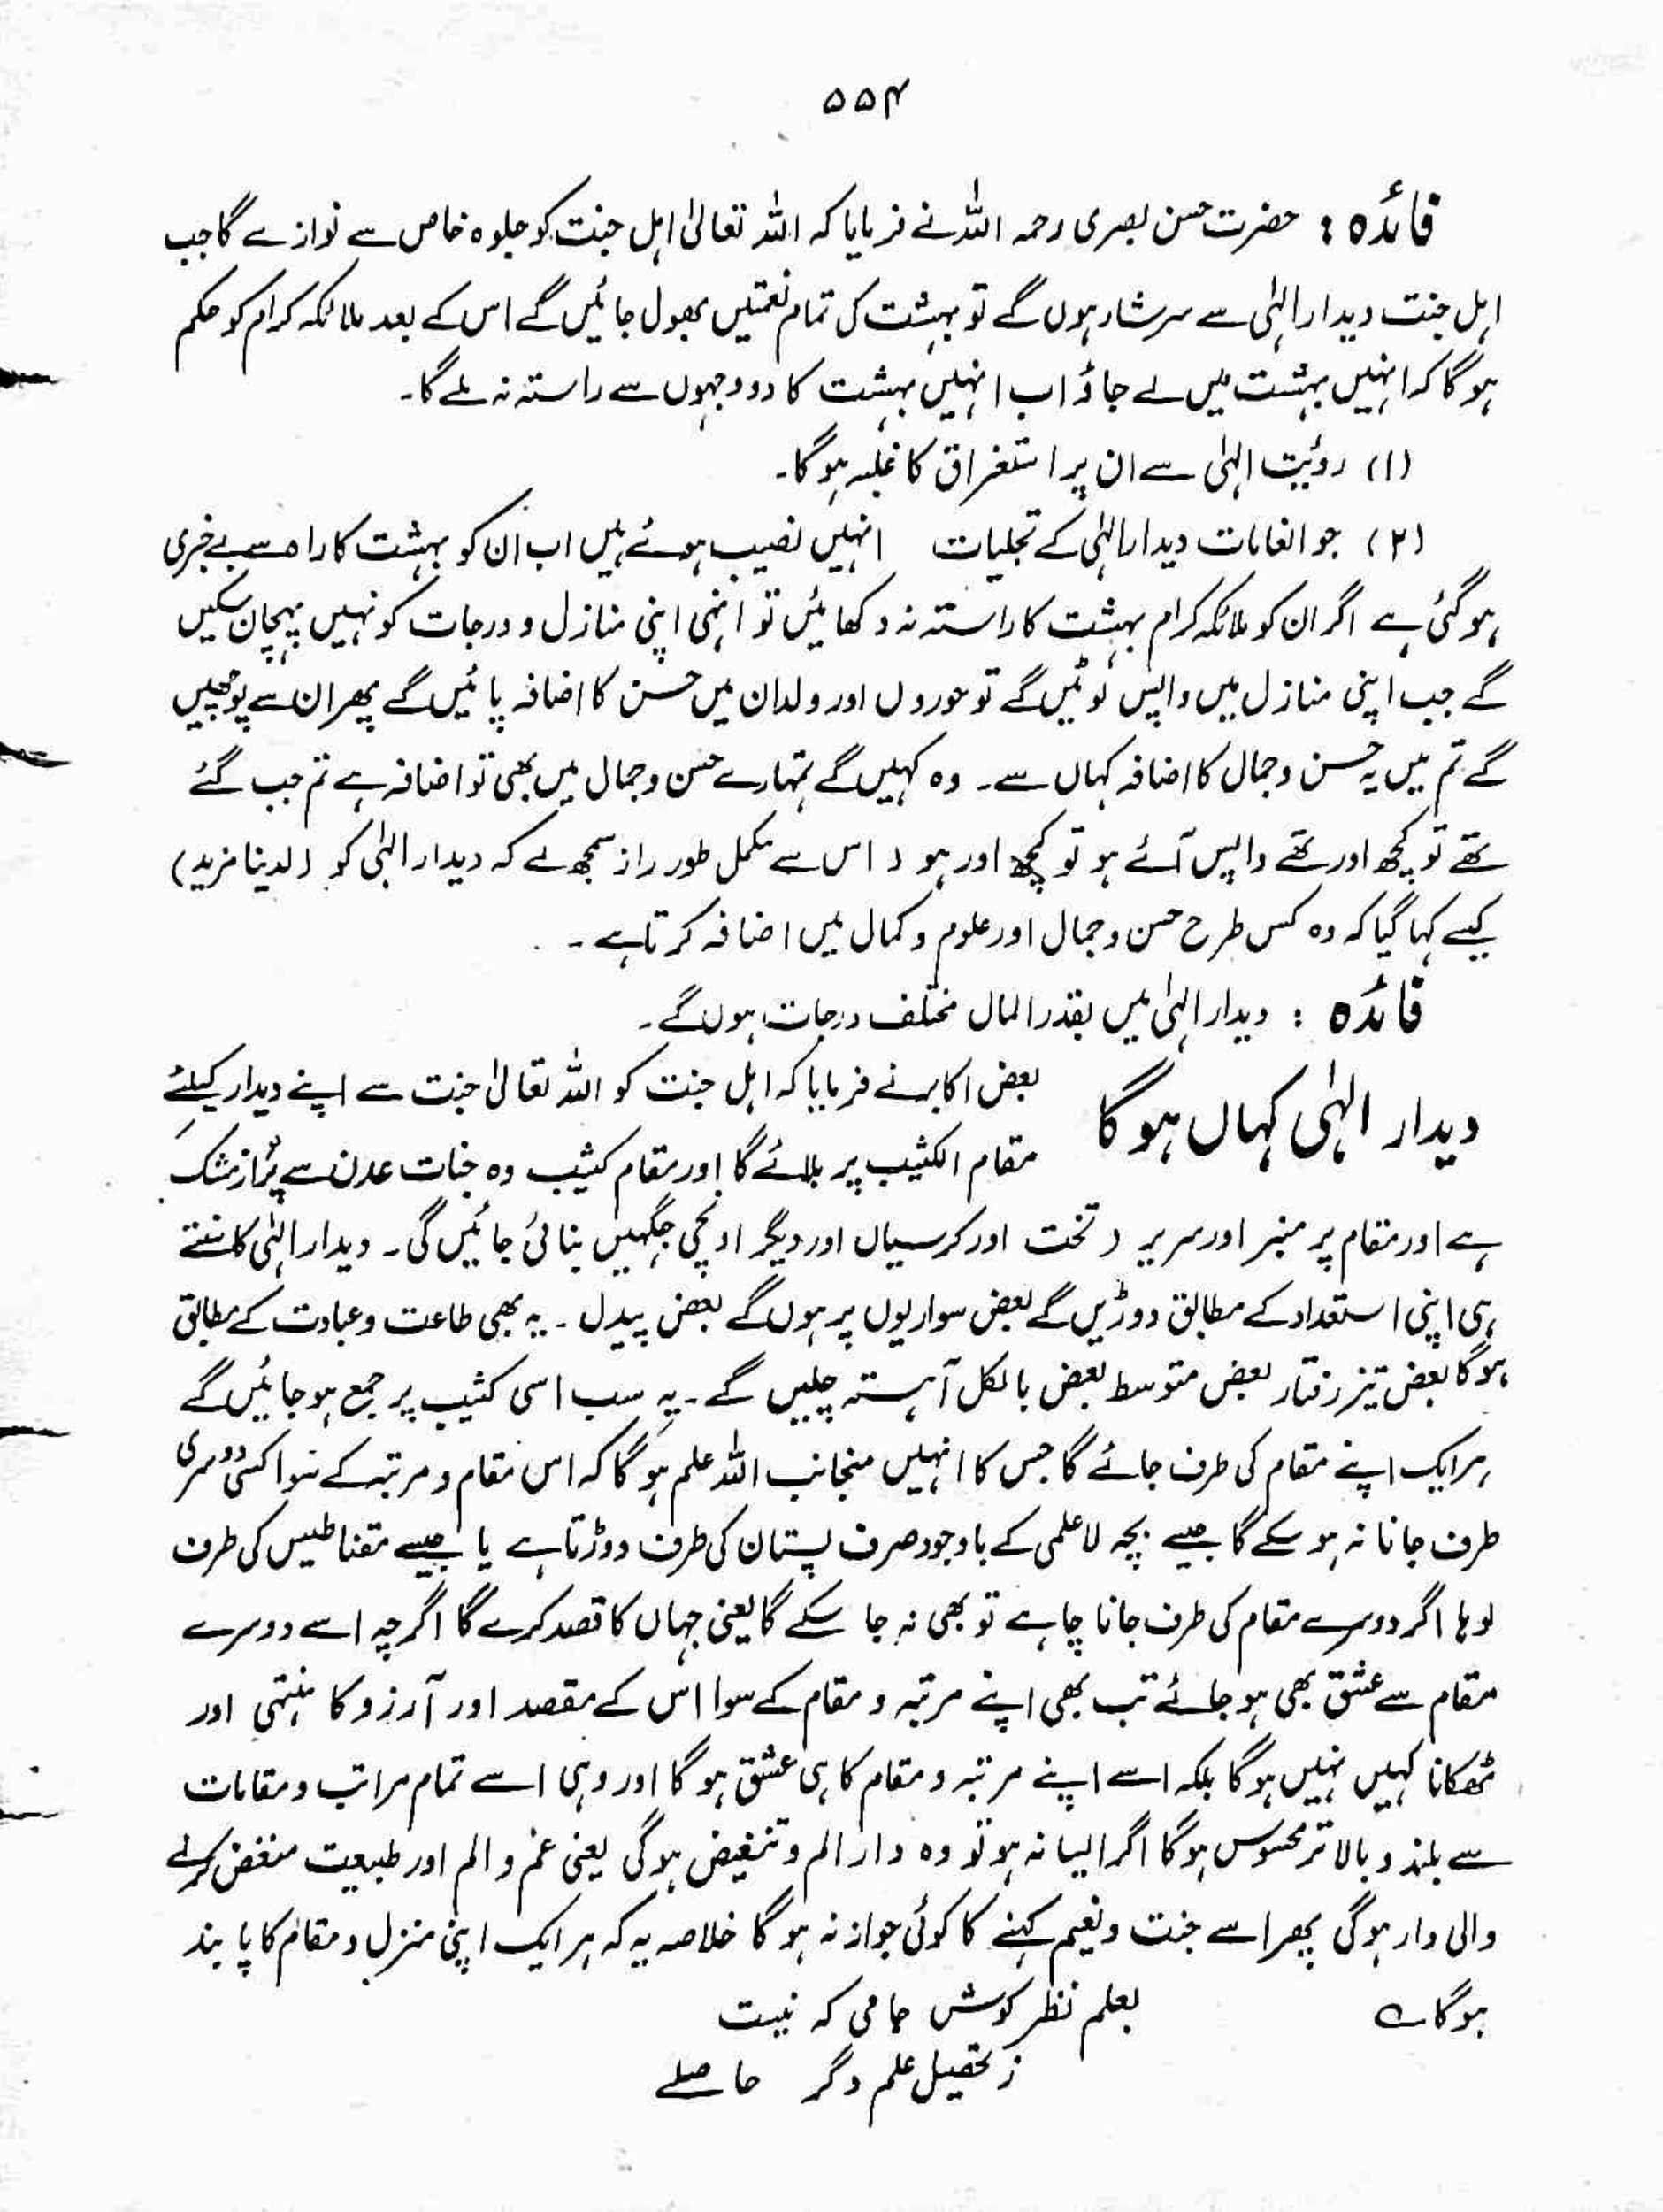 ۵۵۴
فائدہ : حضرت حسن بصری رحمہ اللہ نے فرمایا کہ اللہ تعالیٰ اہل جنت کو جلوہ خاص سے نوازے گا جب
اہل جنت دیدار الہٰی سے سرشار ہوں گے تو بہشت کی تمام نعمتیں بھول جائیں گے اس کے بعد ملائکہ کرام کو حکم
ہو گا کہ انہیں بہشت میں لے جاؤ اب انہیں بہشت کا دو وجہوں سے راستہ نہ ملے گا۔
(۱) روئیت الہٰی سے ان پر استغراق کا غلبہ ہو گا۔
(۲) جو انعامات دیدار الہٰی کے تجلیات انہیں نصیب ہوئے ہیں اب ان کو بہشت کا راہ سے بے خبری
ہو گئی ہے اگر ان کو ملائکہ کرام بہشت کا راستہ نہ دکھائیں تو انہی اپنی منازل و درجات کو نہیں پہچان سکیں
گے جب اپنی منازل میں واپس لوٹیں گے تو حوروں اور ولدان میں حسن کا اضافہ پائیں گے پھر ان سے پوچھیں
گے تم میں یہ حسن و جمال کا اضافہ کہاں سے۔ وہ کہیں گے تمہارے حسن و جمال میں بھی تو اضافہ ہے تم جب گئے
تھے تو کچھ اور تھے واپس آئے ہو تو کچھ اور ہو ( اس سے مکمل طور راز سمجھ لے کہ دیدار الہٰی کو (لدینا مزید)
کیسے کہا گیا کہ وہ کس طرح حسن و جمال اور علوم و کمال میں اضافہ کرتا ہے۔
فائدہ : دیدار الہٰی میں بقدر المال مختلف درجات ہوں گے۔
دیدار الہٰی کہاں ہو گا
بعض اکابر نے فرمایا کہ اہل جنت کو اللہ تعالیٰ جنت سے اپنے دیدار کیلئے
مقام الکثیب پر بلائے گا اور مقام کثیب وہ جنات عدن سے پُر از مشک
ہے اور مقام پر منبر اور سریر ( تخت اور کرسیاں اور دیگر اونچی جگہیں بنائی جائیں گی۔ دیدار الہٰی کا سنتے
ہی اپنی استعداد کے مطابق دوڑیں گے بعض سواریوں پر ہوں گے بعض پیدل۔ یہ بھی طاعت و عبادت کے مطابق
ہو گا بعض تیز رفتار بعض متوسط بعض بالکل آہستہ چلیں گے۔ یہ سب اسی کثیب پر جمع ہو جائیں گے
ہر ایک اپنے مقام کی طرف جائے گا جس کا انہیں منجانب اللہ علم ہو گا کہ اس مقام و مرتبہ کے سوا کسی دوسری
طرف جانا نہ ہو سکے گا جیسے بچہ لاعلمی کے باوجود صرف پستان کی طرف دوڑتا ہے یا جیسے مقناطیس کی طرف
لوہا اگر دوسرے مقام کی طرف جانا چاہے تو بھی نہ جا سکے گا یعنی جہاں کا قصد کرے گا اگرچہ اسے دوسرے
مقام سے عشق بھی ہو جائے تب بھی اپنے مرتبہ و مقام کے سوا اس کے مقصد اور آرزو کا منتہی اور
ٹھکانا کہیں نہیں ہو گا بلکہ اسے اپنے مرتبہ و مقام کا ہی عشق ہو گا اور وہی اسے تمام مراتب و مقامات
سے بلند و بالا تر محسوس ہو گا اگر ایسا نہ ہو تو وہ دار الم و تنغیض ہو گی یعنی غم و الم اور طبیعت منغض کرنے
والی دار ہو گی پھر اسے جنت و نعیم کہنے کا کوئی جواز نہ ہو گا خلاصہ یہ کہ ہر ایک اپنی منزل و مقام کا پابند
ہو گا ے بعلم نظر کوش جامی کہ نیست
ز تحصیل علم دگر حاصلے